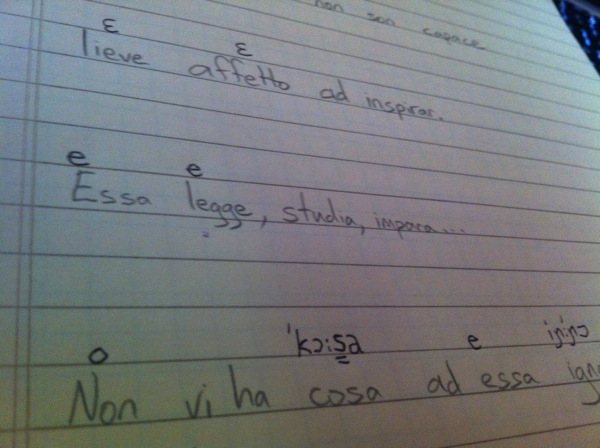 non son capace
ɛ ɛ
lieve affetto ad inspirar.
e e
Essa legge, studia, impara...
o ˈkɔːsa e
Non vi ha cosa ad essa